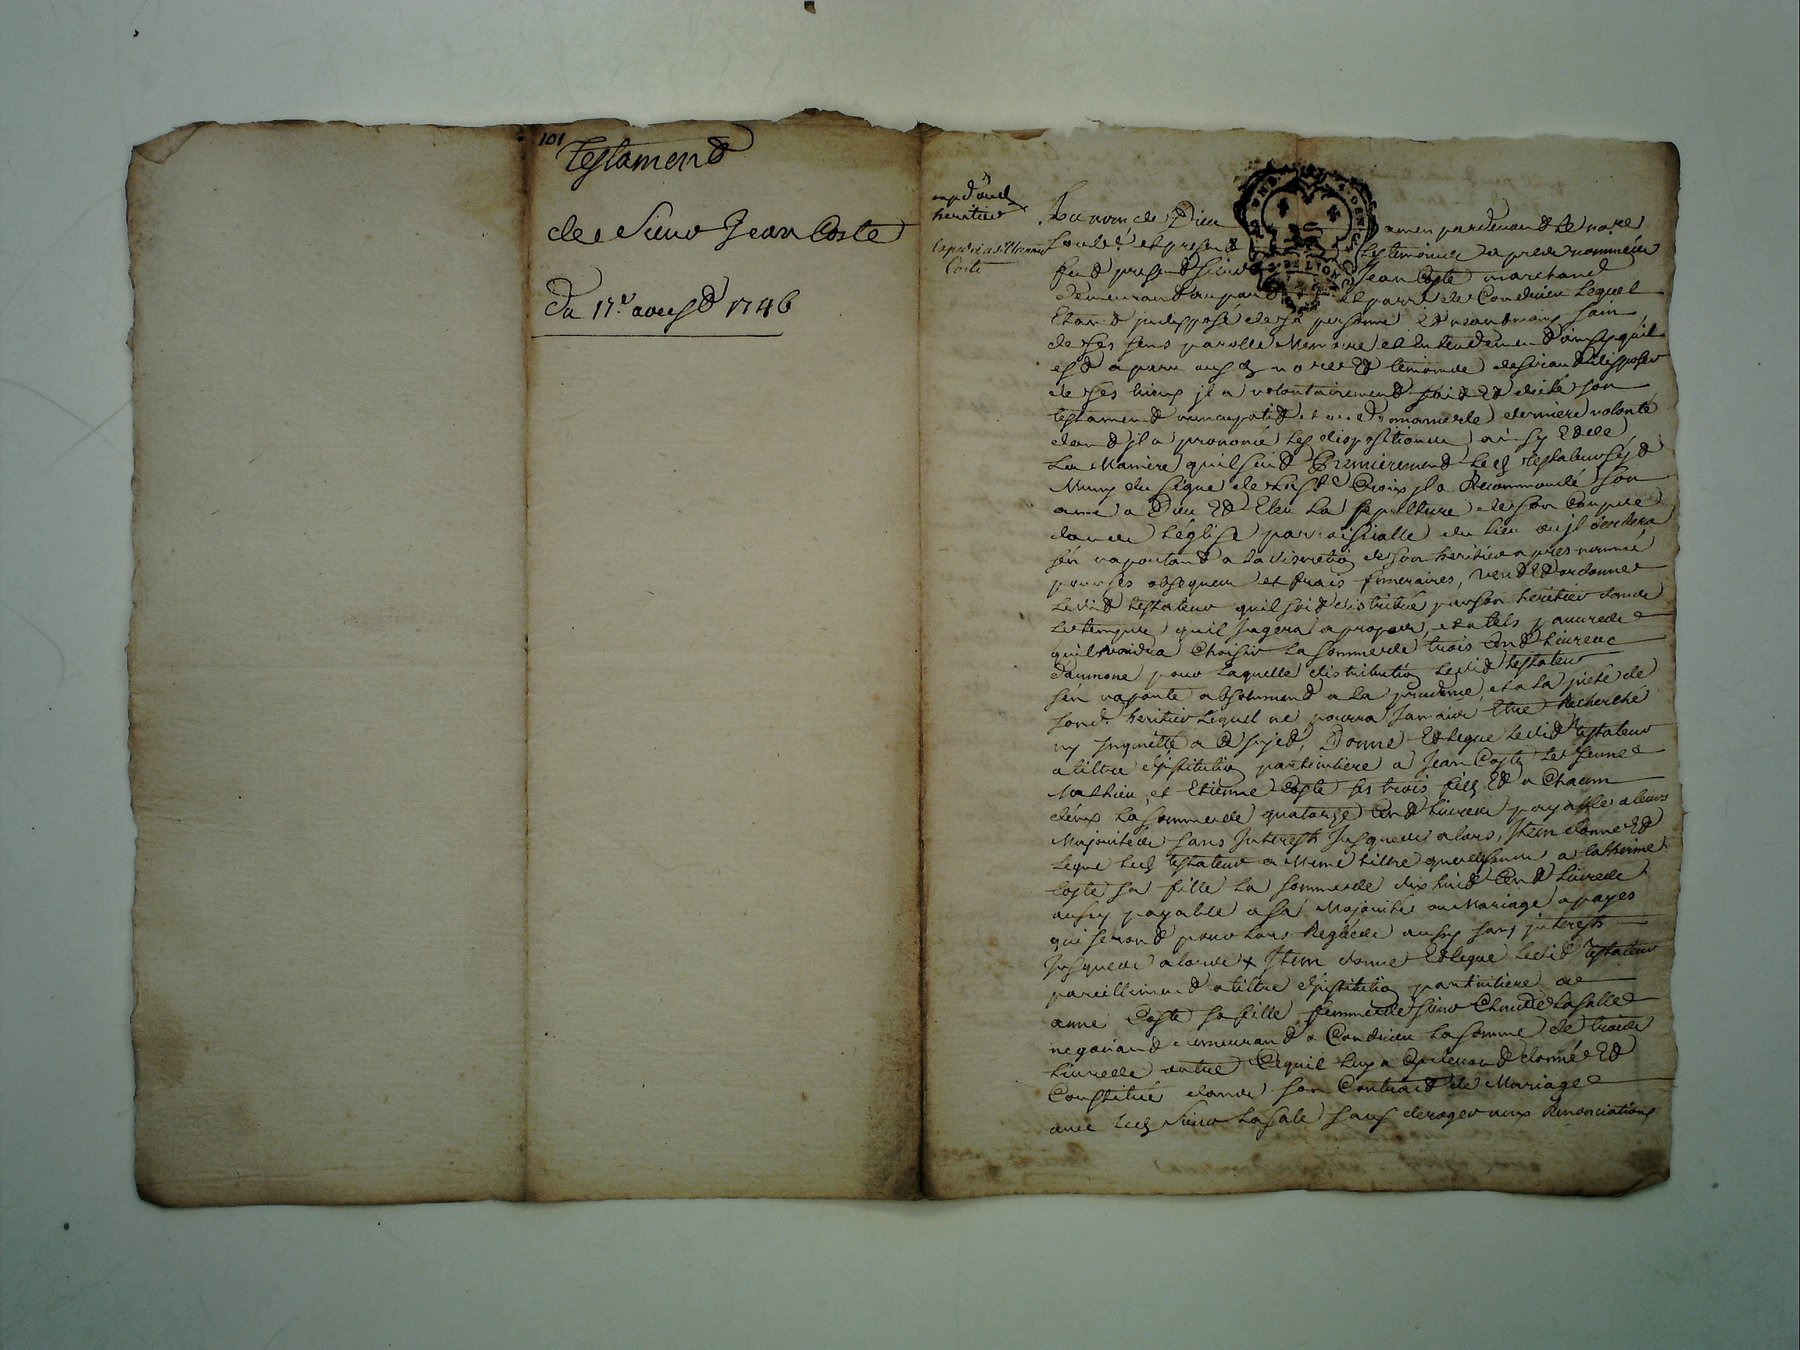 101
Testament
de Sieur Jean Coste
Du 17e aoust 1746
expd aud
heritier
Coste
Au nom de Dieu amen pardevant le nore
soubz.é et present les temoins apres nommés
fut present sieur Jean Coste marchand
demeurant au port et parr.e de Condrieu Lequel
Etant indisposé de sa personne Et neantmoins sain
de ses sens parolle Memoire et Entendement ainsy quil
est aparu auxd nore Et temoins desirant disposer
de ses biens jl a volontairement fait Et dicté son
testament nuncupatif et derniere volonté
dont jl a prononcé les dispositions ainsy Et de
La Maniere quil suit Premierement led Testateur sest
Muny du signe de La Ste Croix jl a Recommandé son
ame a Dieu Et Eleu La sepulture de son Corps
dans L'église parroissialle du lieu ou jl decedera
s'en raportant a la discretion de son heritier apres nommé
pour ses obseques et frais funeraires, veut Et ordonne
Ledit testateur quil soit distribué par son heritier dans
Le temps quil Jugera a propos, et a tels pauvres
quil voudra Choisir La somme de trois Cent Livres
d'aumone pour Laquelle distribution Ledit testateur
s'en raporte absolument a La prudence, et a La pieté de
sond. heritier Lequel ne pourra Jamais Etre Recherché
ny Inquietté a Ce sujet, Donne Et Legue Ledit Testateur
a tiltre d'jnstitution particuliere a Jean Coste Le Jeune
Mathieu, et Etienne Coste ses trois fils Et a Chacun
d'eux La somme de quatorze Cent Livres payable a leurs
Majorités sans Interests Jusques alors, Item donne Et
Legue led testateur a Meme tiltre que dessus a Catherine
Coste sa fille La somme de dix huit Cent Livres
aussy payable a sa Majorité ou Mariage a payes
qui seront pour Lors Reglés aussy sans jnterests
Jusques alors + Item donne Et Legue Ledit Testateur
pareillement a tiltre d'jnstitution particuliere a
anne Coste sa fille femme de sieur Claude Lasalle
negotiant demeurant a Condrieu La somme de trois
Livres outre Ce quil Luy a Cy devant donné Et
Constitué dans son Contract de Mariage
avec led sieur Lasale sans deroger aux Renonciations